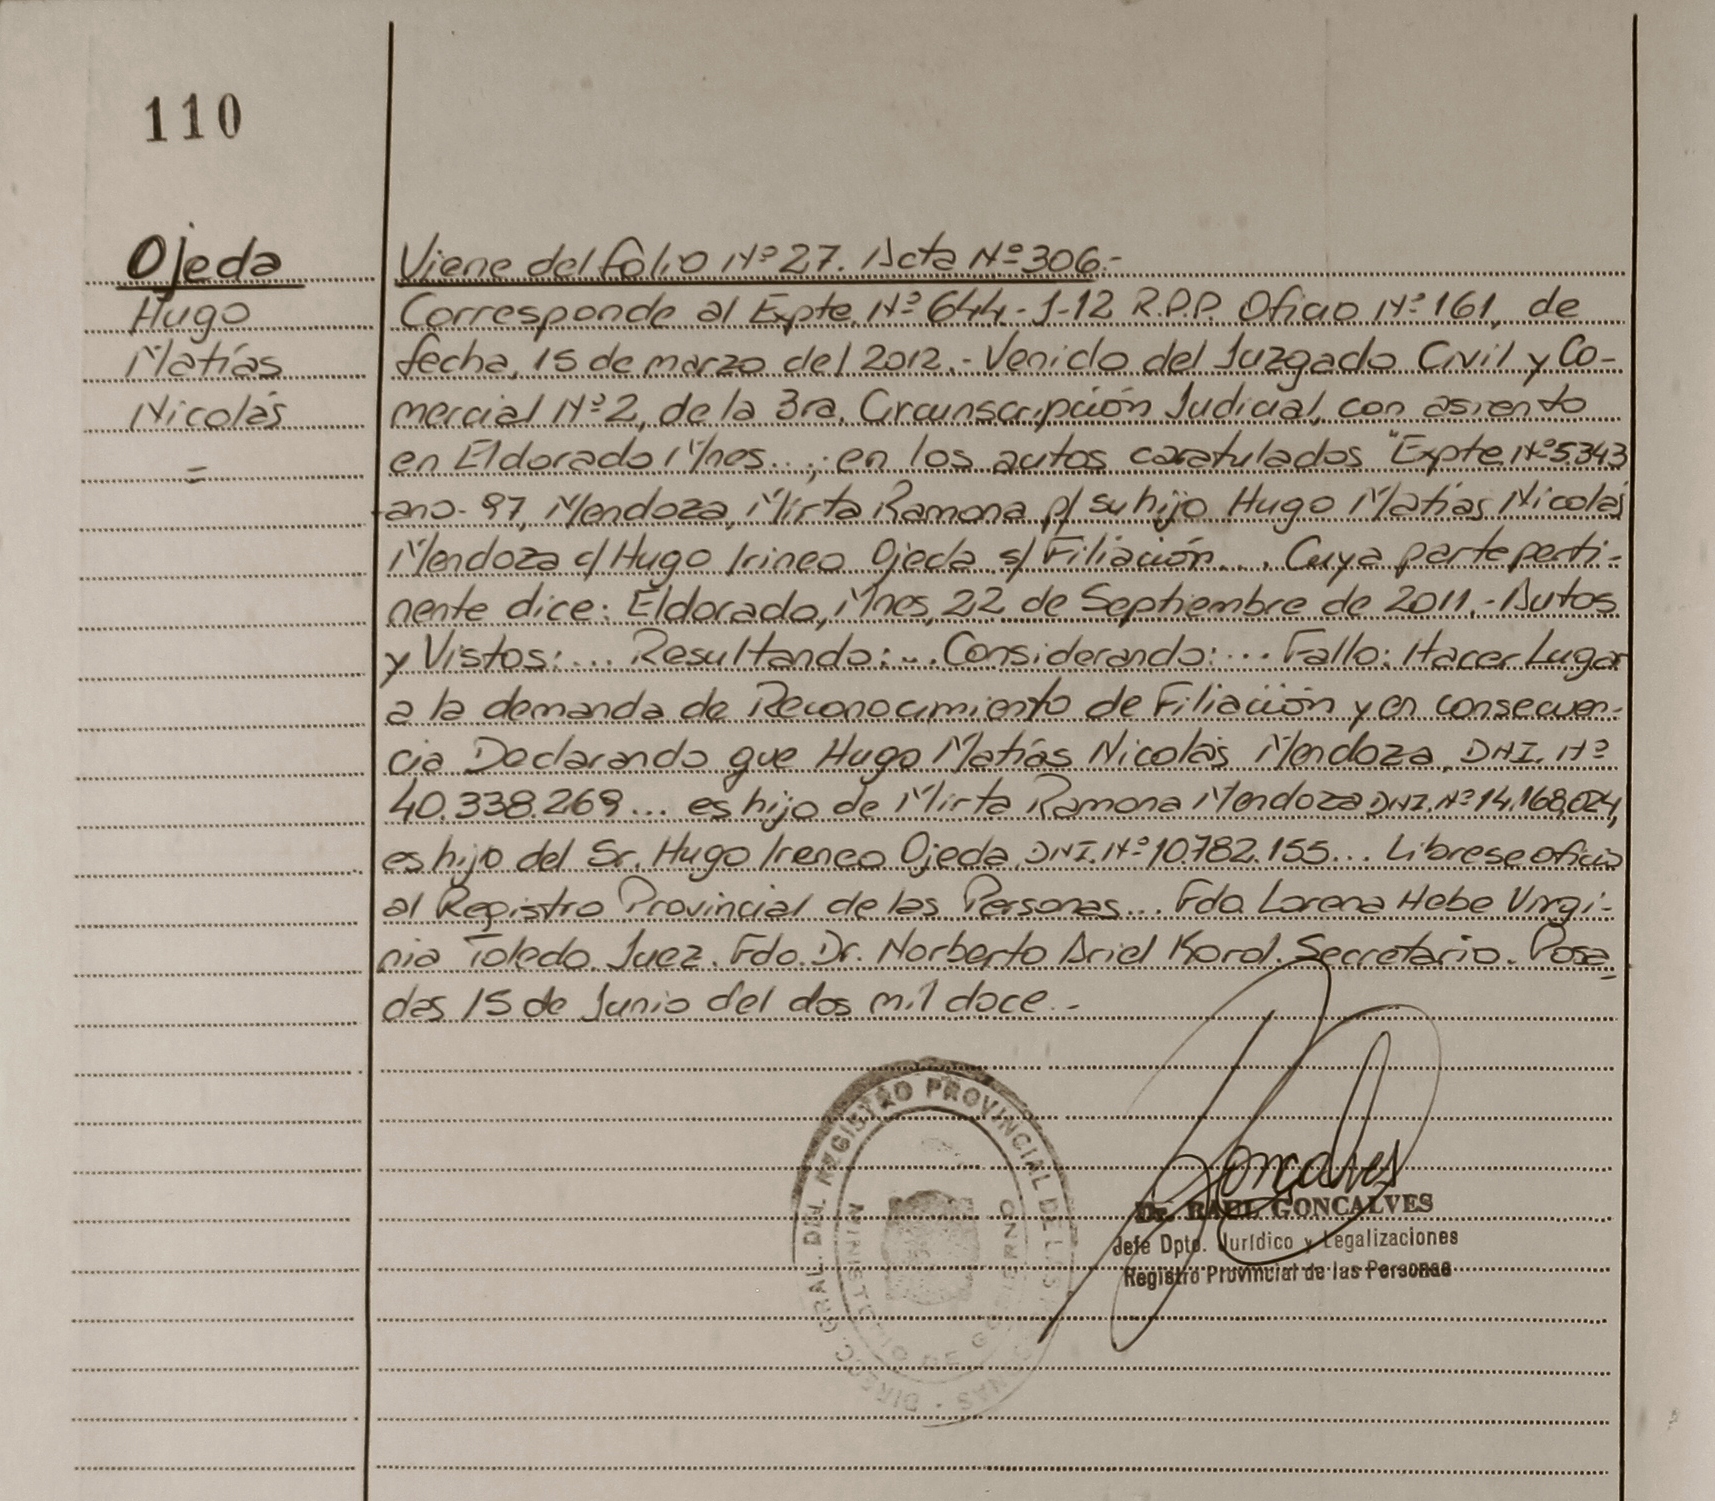 110
Ojeda
Hugo
Matías
Nicolás
=
Viene del folio Nº 27. Acta Nº 306.-
Corresponde al Expte. Nº 644-J-12 R.P.P. Oficio Nº 161, de
fecha, 15 de marzo del 2012.- Venido del Juzgado Civil y Co-
mercial Nº 2, de la 3ra. Circunscripción Judicial, con asiento
en Eldorado Mnes...; en los autos caratulados "Expte. Nº 5.343
ano- 97, Mendoza, Mirta Ramona p/ su hijo Hugo Matías Nicolás
Mendoza c/ Hugo Irineo Ojeda s/ Filiación.... Cuya parte perti-
nente dice: Eldorado, Mnes, 22 de Septiembre de 2011.- Autos
y Vistos:... Resultando:... Considerando:... Fallo: Hacer Lugar
a la demanda de Reconocimiento de Filiación y en consecuen-
cia Declarando que Hugo Matías Nicolás Mendoza, DNI. Nº
40.338.269... es hijo de Mirta Ramona Mendoza DNI. Nº 14.168.024,
es hijo del Sr. Hugo Ireneo Ojeda, DNI. Nº 10.782.155... Librese oficio
al Registro Provincial de las Personas... Fdo. Lorena Hebe Virgi-
nia Toledo. Juez. Fdo. Dr. Norberto Ariel Korol. Secretario. Posa-
das 15 de Junio del dos mil doce.-
DIREC. GRAL. DEL REGISTRO PROVINCIAL DE LAS PERSONAS
MINISTERIO DE GOBIERNO
Goncalves
Dr. RAUL GONCALVES
Jefe Dpto. Jurídico y Legalizaciones
Registro Provincial de las Personas